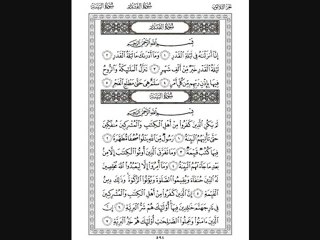 سُورَةُ القَدْرِ
بِسْمِ اللَّهِ الرَّحْمَٰنِ الرَّحِيمِ
إِنَّا أَنزَلْنَٰهُ فِي لَيْلَةِ الْقَدْرِ ١ وَمَا أَدْرَىٰكَ مَا لَيْلَةُ الْقَدْرِ ٢
لَيْلَةُ الْقَدْرِ خَيْرٌ مِّنْ أَلْفِ شَهْرٍ ٣ تَنَزَّلُ الْمَلَٰٓئِكَةُ وَالرُّوحُ
فِيهَا بِإِذْنِ رَبِّهِم مِّن كُلِّ أَمْرٍ ٤ سَلَٰمٌ هِيَ حَتَّىٰ مَطْلَعِ الْفَجْرِ ٥
سُورَةُ البَيِّنَةِ
بِسْمِ اللَّهِ الرَّحْمَٰنِ الرَّحِيمِ
لَمْ يَكُنِ الَّذِينَ كَفَرُوا مِنْ أَهْلِ الْكِتَٰبِ وَالْمُشْرِكِينَ مُنفَكِّينَ
حَتَّىٰ تَأْتِيَهُمُ الْبَيِّنَةُ ١ رَسُولٌ مِّنَ اللَّهِ يَتْلُوا صُحُفًا مُّطَهَّرَةً ٢
فِيهَا كُتُبٌ قَيِّمَةٌ ٣ وَمَا تَفَرَّقَ الَّذِينَ أُوتُوا الْكِتَٰبَ إِلَّا مِنۢ
بَعْدِ مَا جَآءَتْهُمُ الْبَيِّنَةُ ٤ وَمَا أُمِرُوا إِلَّا لِيَعْبُدُوا اللَّهَ مُخْلِصِينَ
لَهُ الدِّينَ حُنَفَآءَ وَيُقِيمُوا الصَّلَوٰةَ وَيُؤْتُوا الزَّكَوٰةَ وَذَٰلِكَ دِينُ
الْقَيِّمَةِ ٥ إِنَّ الَّذِينَ كَفَرُوا مِنْ أَهْلِ الْكِتَٰبِ وَالْمُشْرِكِينَ
فِي نَارِ جَهَنَّمَ خَٰلِدِينَ فِيهَا أُولَٰٓئِكَ هُمْ شَرُّ الْبَرِيَّةِ ٦ إِنَّ
الَّذِينَ ءَامَنُوا وَعَمِلُوا الصَّٰلِحَٰتِ أُولَٰٓئِكَ هُمْ خَيْرُ الْبَرِيَّةِ ٧
٥٩٨